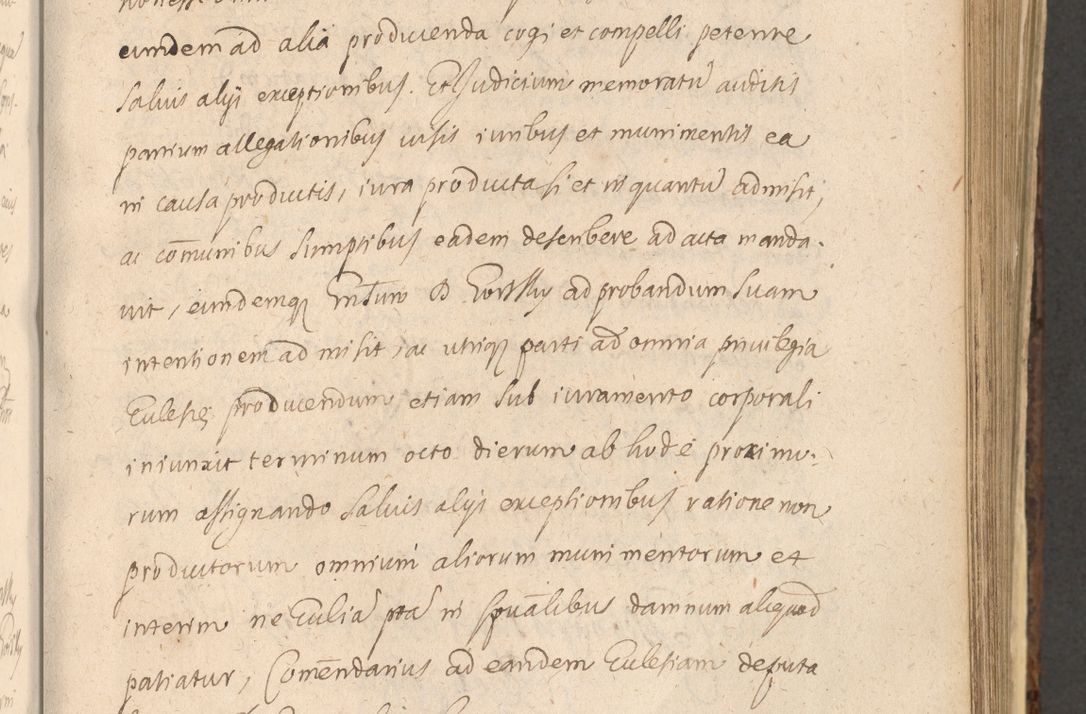 eundem ad alia producenda cogi et compelli petente
salvis alijs exceptionibus. Et Judicium memoratū auditis
partium allegationibus visis iuribus et munimentis ea
in causa productis, iura producta si et in quantū admisit,
ac com̄unibus sumptibus eadem describere ad acta manda-
vit, eundemq ad probandum suam
intentionem admisit, ac utriq parti ad omnia privilegia
Ecclesię producendum etiam sub iuramento corporali
iniunxit terminum octo dierum ab hodie proximo-
rum assignando salvis alijs exceptionibus ratione non
productorum omnium aliorum munimentorum et
interim ne Ecclia pta in spūalibus damnum aliquod
patiatur, Com̄endarius ad eandem Ecclesiam deputa